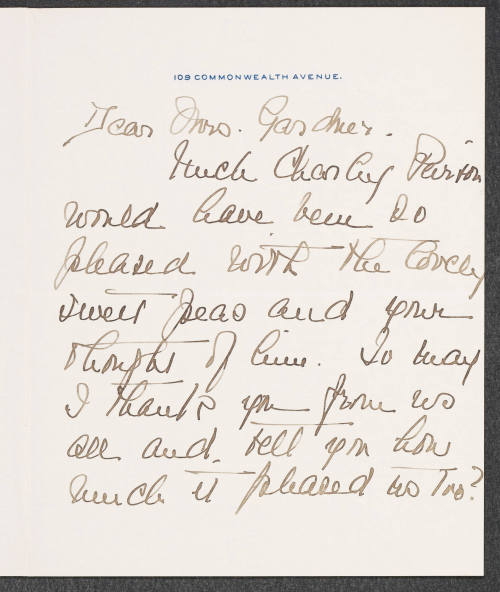 109 COMMONWEALTH AVENUE.
Dear Mrs. Gardner.
Uncle Charley
would have been so
pleased with the lovely
sweet peas and your
thought of him. So may
I thank you from us
all and tell you how
much it pleased us too?